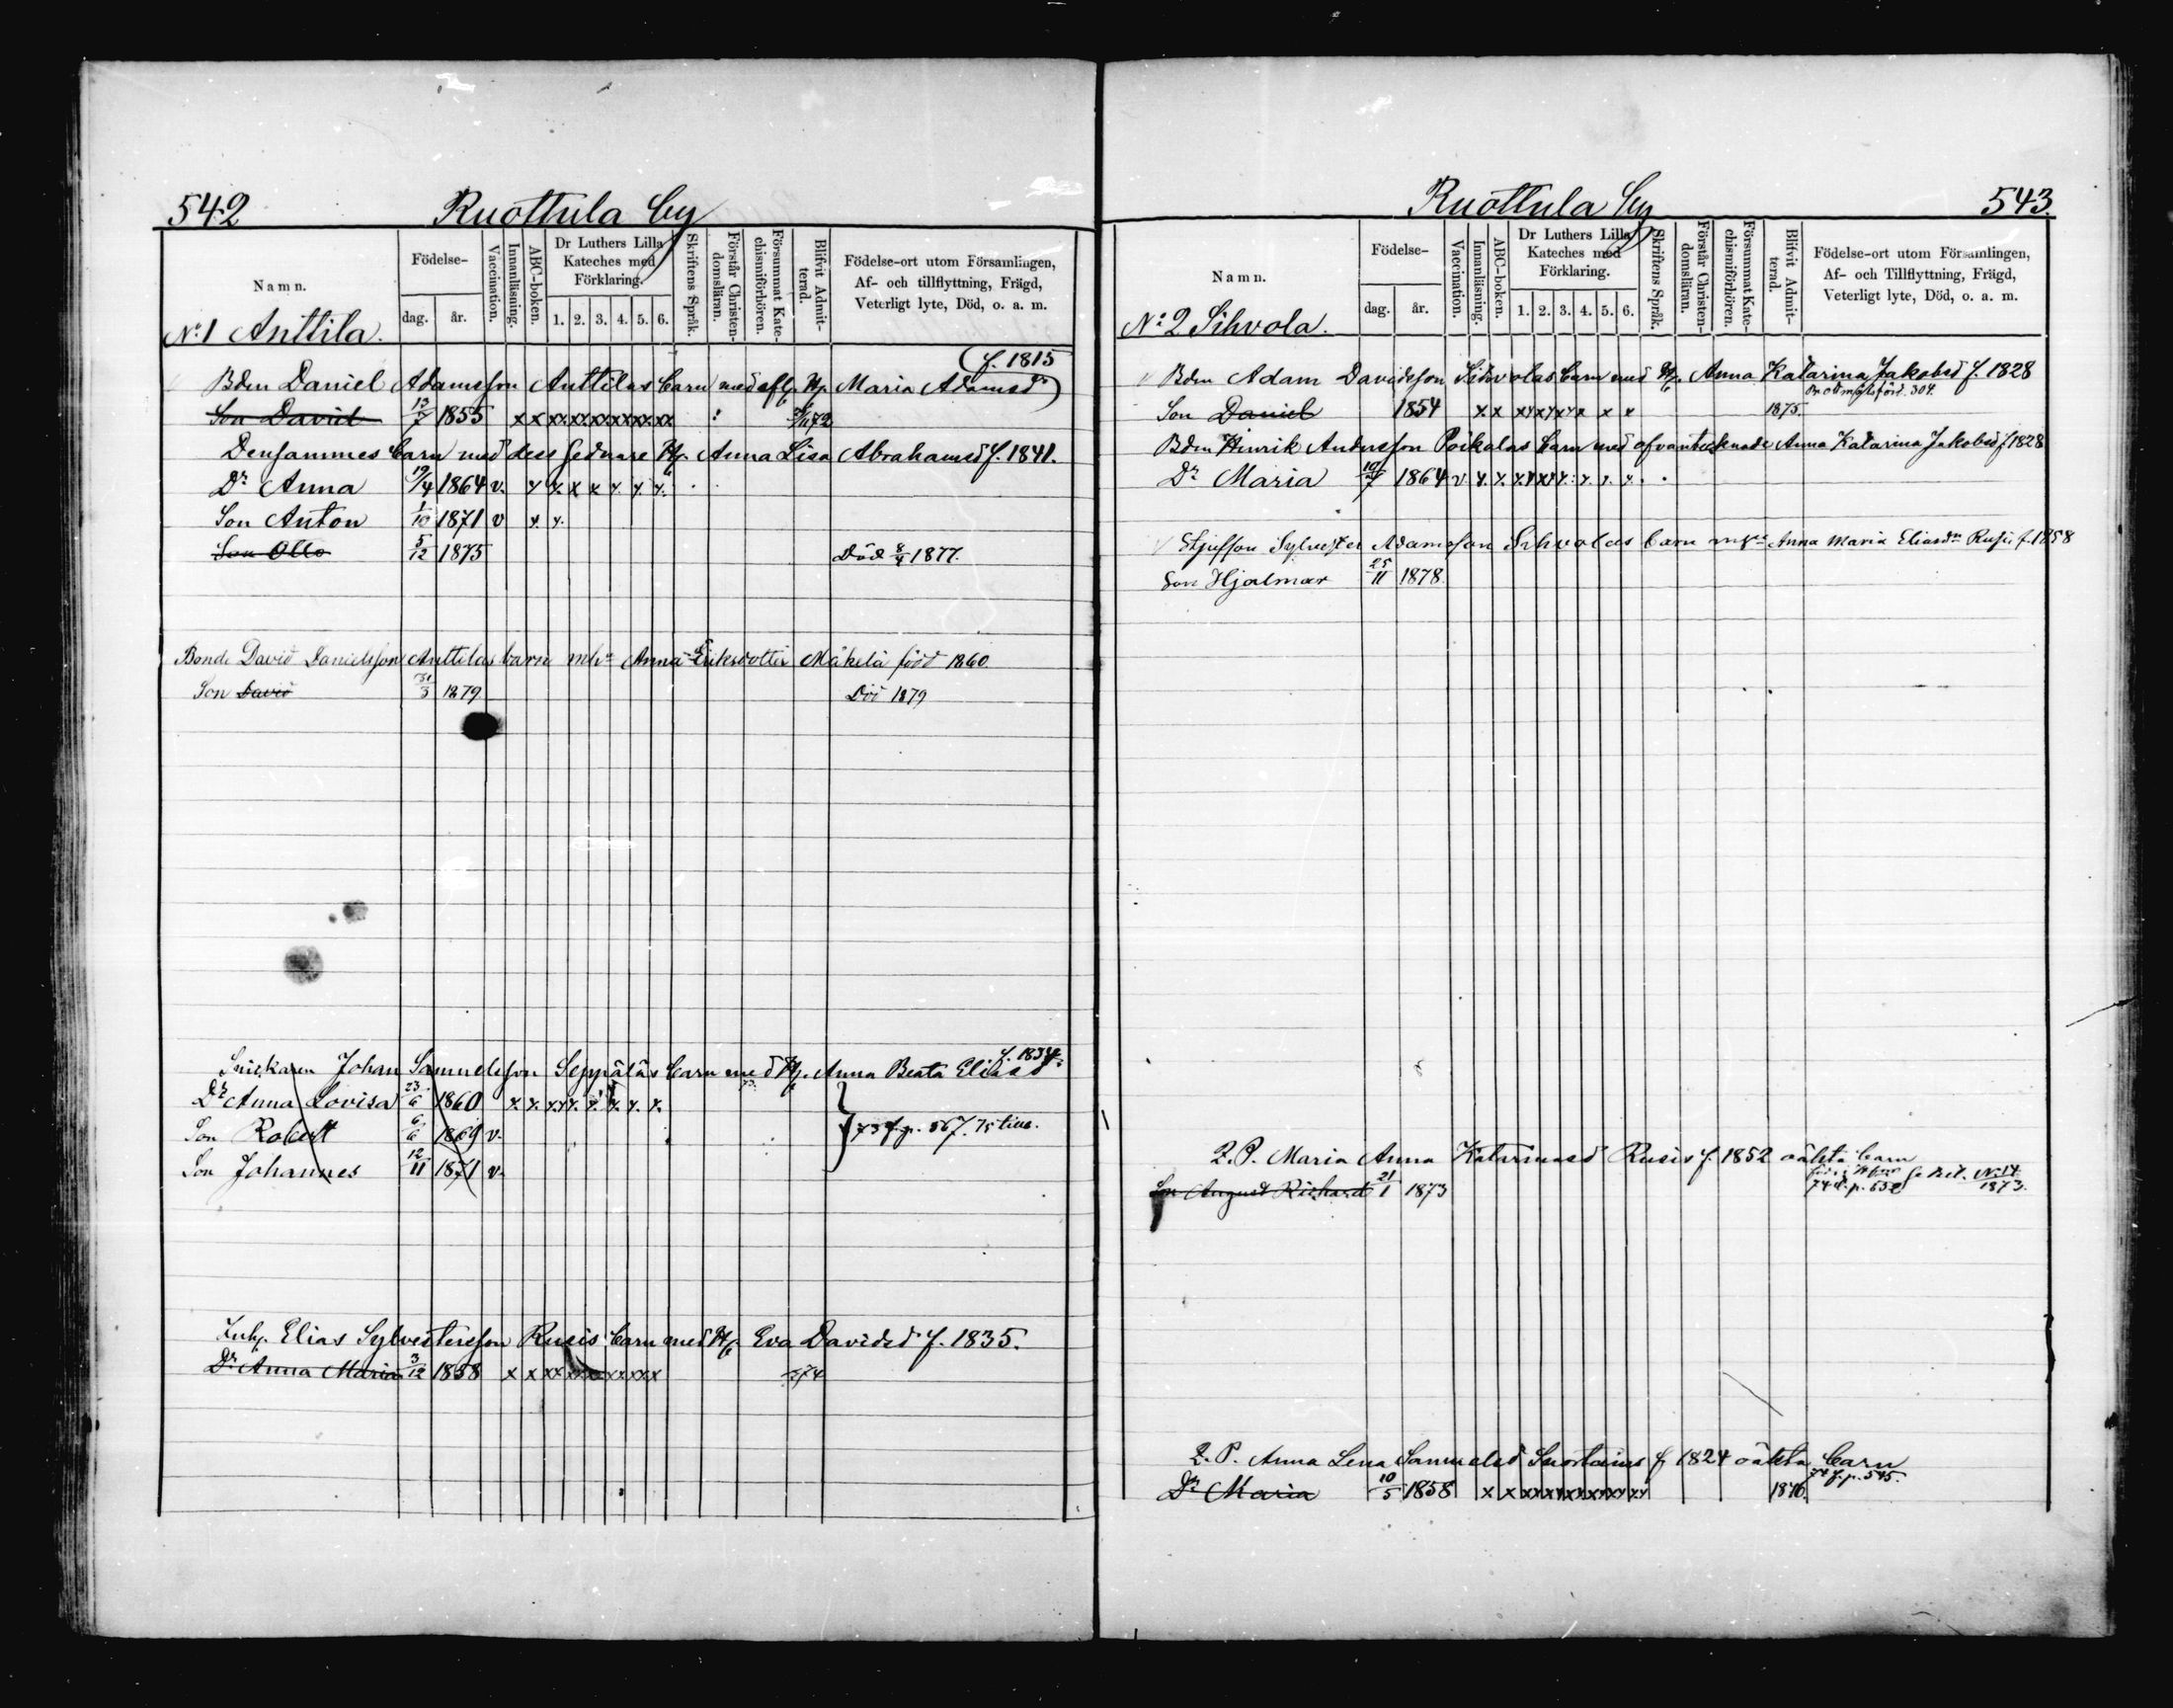 542 Ruottula by
Namn. Födelse- dag. år. Vaccination. Innanläsning. ABC-boken. Dr Luthers Lilla Kateches med Förklaring. 1. 2. 3. 4. 5. 6. Skriftens Språk. Förstår Christendomsläran. Försummat Katechismiförhören. Blifvit Admitterad. Födelse-ort utom Församlingen, Af- och tillflyttning, Frägd, Veterligt lyte, Död, o. a. m.
No 1 Anttila.
f. 1815
Bden Daniel Adamsson Anttilas barn med afl. H. Maria Adamsdr)
Son David 13/7 1855 x x xx xx xx xx xx xx
Densammes barn med dess sednare H. Anna Lisa Abrahamsd f. 1841.
Dr Anna 19/4 1864 v. x x x x x x x
Son Anton 1/10 1871 v x x.
Son Otto 5/12 1875 Död 8/4 1877.
Bonde David Danielsson Anttilas barn mhu Anna Eriksdotter Mäkelä född 1860.
Son David 31/3 1879 Död 1879
f. 1834
Snickaren Johan Samuelsson Seppäläs barn med H. Anna Beata Eliasd
Dr Anna Lovisa 23/6 1860 x x xx x x x x x
Son Robert 6/6 1869 v. 73 f. p. 567. 75
Son Johannes 12/11 1871 v.
Inh. Elias Sylvestersson Rusis barn med H. Eva Davidsd f. 1835.
Dr Anna Maria 3/12 1858 x x xx xx xx xx xx 74
543. Ruottula by
Namn. Födelse- dag. år. Vaccination. Innanläsning. ABC-boken. Dr Luthers Lilla Kateches med Förklaring. 1. 2. 3. 4. 5. 6. Skriftens Språk. Förstår Christendomsläran. Försummat Katechismiförhören. Blifvit Admitterad. Födelse-ort utom Församlingen, Af- och Tillflyttning, Frägd, Veterligt lyte, Död, o. a. m.
No 2 Sihvola.
Bden Adam Davidsson Sihvolas barn med H. Anna Katarina Jakobsd f. 1828
Son Daniel 1854 x x xx xx xx x x 1875. 304.
Bden Hinrik Andersson Poikolas barn med ofvantecknade Anna Katarina Jakobsd f 1828
Dr Maria 10/7 1864 v x. x. xx xx x. x. x. x.
Stjufson Sylvester Adamsson Sihvolas barn Anna Maria Eliasdr Rusi f. 1858
Son Hjalmar 25/11 1878.
Q. P. Maria Anna Katarinasd Rusis f. 1852 oäkta barn
Son August Rikhard 21/1 1873 74 f. p. 652 No 14 1873.
Q. P. Anna Lena Samuelsd f 1824 oäkta barn
Dr Maria 10/5 1858 x x xx xx xx xx xx xx 1876. f. p. 545.